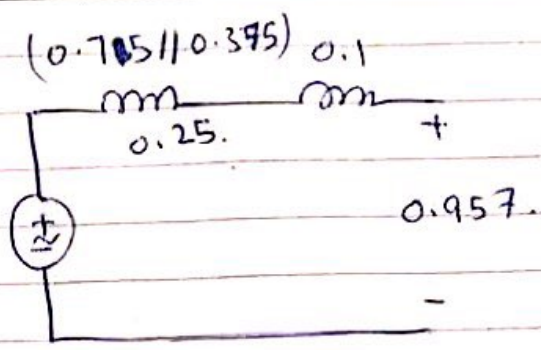 (0.75||0.375) 0.1
0.25.
+
0.957.
+
~
-